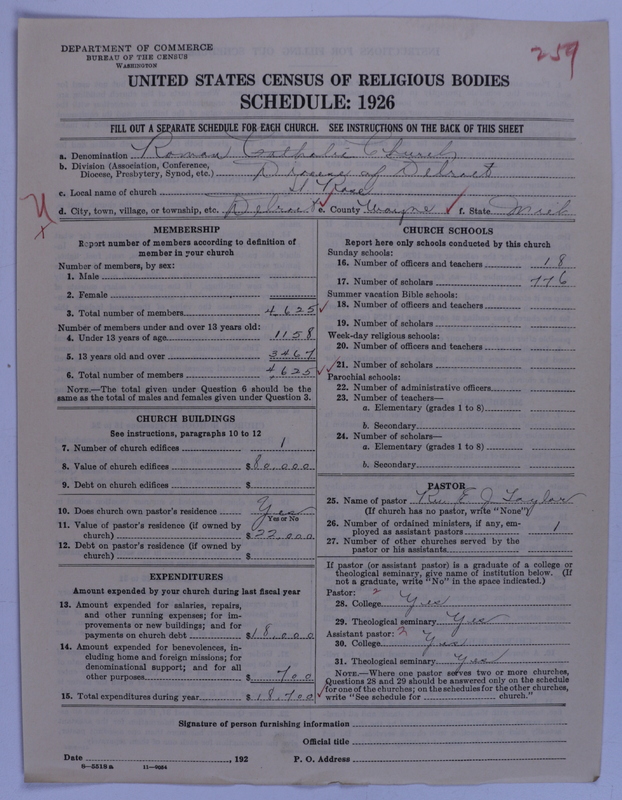 DEPARTMENT OF COMMERCE
BUREAU OF THE CENSUS
WASHINGTON
259
UNITED STATES CENSUS OF RELIGIOUS BODIES
SCHEDULE: 1926
FILL OUT A SEPARATE SCHEDULE FOR EACH CHURCH. SEE INSTRUCTIONS ON THE BACK OF THIS SHEET
a. Denomination Roman Catholic Church
b. Division (Association, Conference,
Diocese, Presbytery, Synod, etc.) Diocese of Detroit
c. Local name of church St Rose
d. City, town, village, or township, etc. Detroit e. County Wayne f. State Mich
MEMBERSHIP
Report number of members according to definition of
member in your church
Number of members, by sex:
1. Male
2. Female
3. Total number of members 4625
Number of members under and over 13 years old:
4. Under 13 years of age 1158
5. 13 years old and over 3467
6. Total number of members 4625
NOTE.—The total given under Question 6 should be the
same as the total of males and females given under Question 3.
CHURCH BUILDINGS
See instructions, paragraphs 10 to 12
7. Number of church edifices 1
8. Value of church edifices $80,000
9. Debt on church edifices $
10. Does church own pastor's residence Yes
Yes or No
11. Value of pastor's residence (if owned by
church) $22,000
12. Debt on pastor's residence (if owned by
church) $
EXPENDITURES
Amount expended by your church during last fiscal year
13. Amount expended for salaries, repairs,
and other running expenses; for im-
provements or new buildings; and for
payments on church debt $18,000
14. Amount expended for benevolences, in-
cluding home and foreign missions; for
denominational support; and for all
other purposes $700
15. Total expenditures during year $18,700
CHURCH SCHOOLS
Report here only schools conducted by this church
Sunday schools:
16. Number of officers and teachers 18
17. Number of scholars 776
Summer vacation Bible schools:
18. Number of officers and teachers
19. Number of scholars
Week-day religious schools:
20. Number of officers and teachers
21. Number of scholars
Parochial schools:
22. Number of administrative officers
23. Number of teachers—
a. Elementary (grades 1 to 8)
b. Secondary
24. Number of scholars—
a. Elementary (grades 1 to 8)
b. Secondary
PASTOR
25. Name of pastor Rev E J Taylor
(If church has no pastor, write "None")
26. Number of ordained ministers, if any, em-
ployed as assistant pastors 1
27. Number of other churches served by the
pastor or his assistants
If pastor (or assistant pastor) is a graduate of a college or
theological seminary, give name of institution below. (If
not a graduate, write "No" in the space indicated.)
Pastor: 2
28. College Yes
29. Theological seminary Yes
Assistant pastor: 2
30. College Yes
31. Theological seminary Yes
NOTE.—Where one pastor serves two or more churches,
Questions 28 and 29 should be answered only on the schedule
for one of the churches; on the schedules for the other churches,
write "See schedule for church."
Signature of person furnishing information
Official title
Date , 192 P. O. Address
8—5518a 11—9054